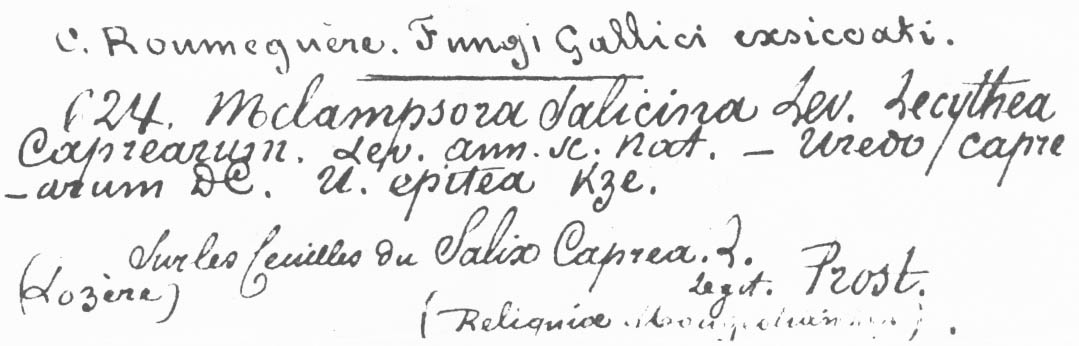 C. Roumeguère. Fungi Gallici exsiccati.
624. Melampsora Salicina Lev. Lecythea
Caprearum. Lev. ann. sc. nat. — Uredo capre
-arum DC. U. epitea Kze.
Sur les feuilles du Salix Caprea. L.
(Lozère) Legit. Prost.
(Reliquiæ